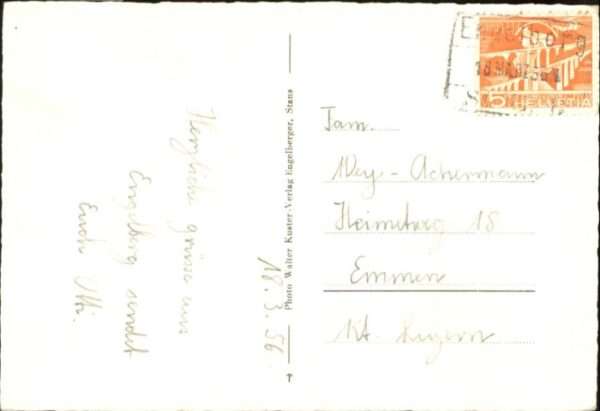 Herzliche grüsse aus
Engelberg sendet
Euch
18. 3. 56
Photo Walter Kuster-Verlag Engelberger, Stans
Engelberg
5 HELVETIA
Fam.
Wey - Achermann
18
Emmen
Kt. Luzern